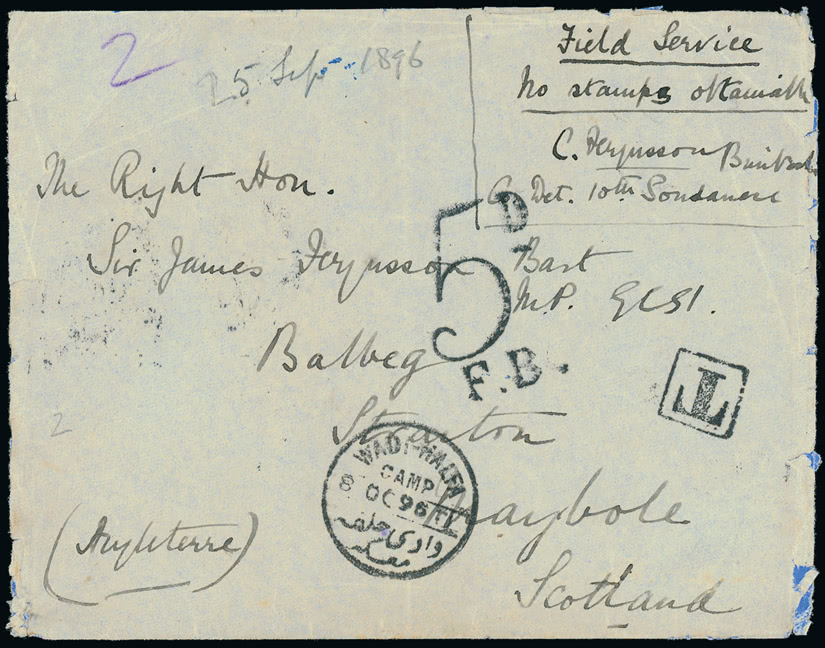 2
25 Sep 1896
Field Service
No stamps obtainable
C. Fergusson
Det. 10th Soudanese
The Right Hon.
Sir James Fergusson Bart
M.P. GCSI.
5D.
F.B.
Balbeg
T
2
Straiton
WADI-HALFA
CAMP
8 OC 96
وادى حلفه
معسكر
Maybole
(Angleterre)
Scotland